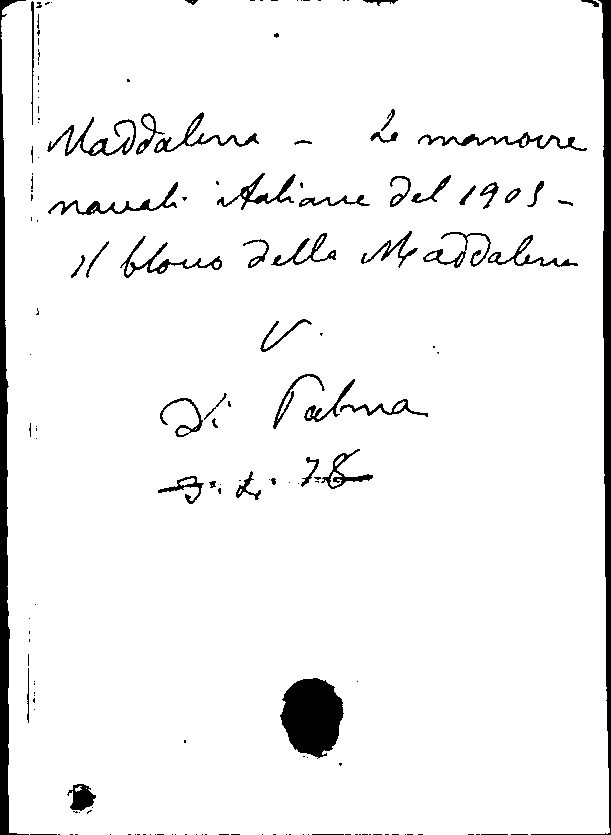 Maddalena – Le manovre
navali italiane del 1903 –
Il blocco della Maddalena
V.
Di Palma
3. L. 78